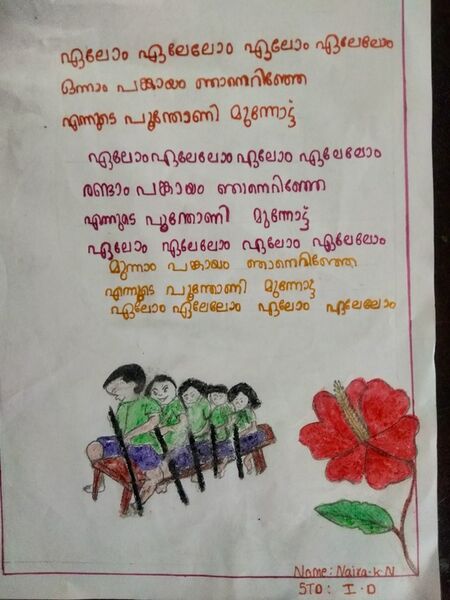 ഏലോം ഏലേലോം ഏലോം ഏലേലോം
ഒന്നാം പങ്കായം ഞാനെറിഞ്ഞേ
എന്നുടെ പൂന്തോണി മുന്നോട്ട്
ഏലോം ഏലേലോം ഏലോം ഏലേലോം
രണ്ടാം പങ്കായം ഞാനെറിഞ്ഞേ
എന്നുടെ പൂന്തോണി മുന്നോട്ട്
ഏലോം ഏലേലോം ഏലോം ഏലേലോം
മൂന്നാം പങ്കായം ഞാനെറിഞ്ഞേ
എന്നുടെ പൂന്തോണി മുന്നോട്ട്
ഏലോം ഏലേലോം ഏലോം ഏലേലോം
Name: Naira.K.N
STD: I.D